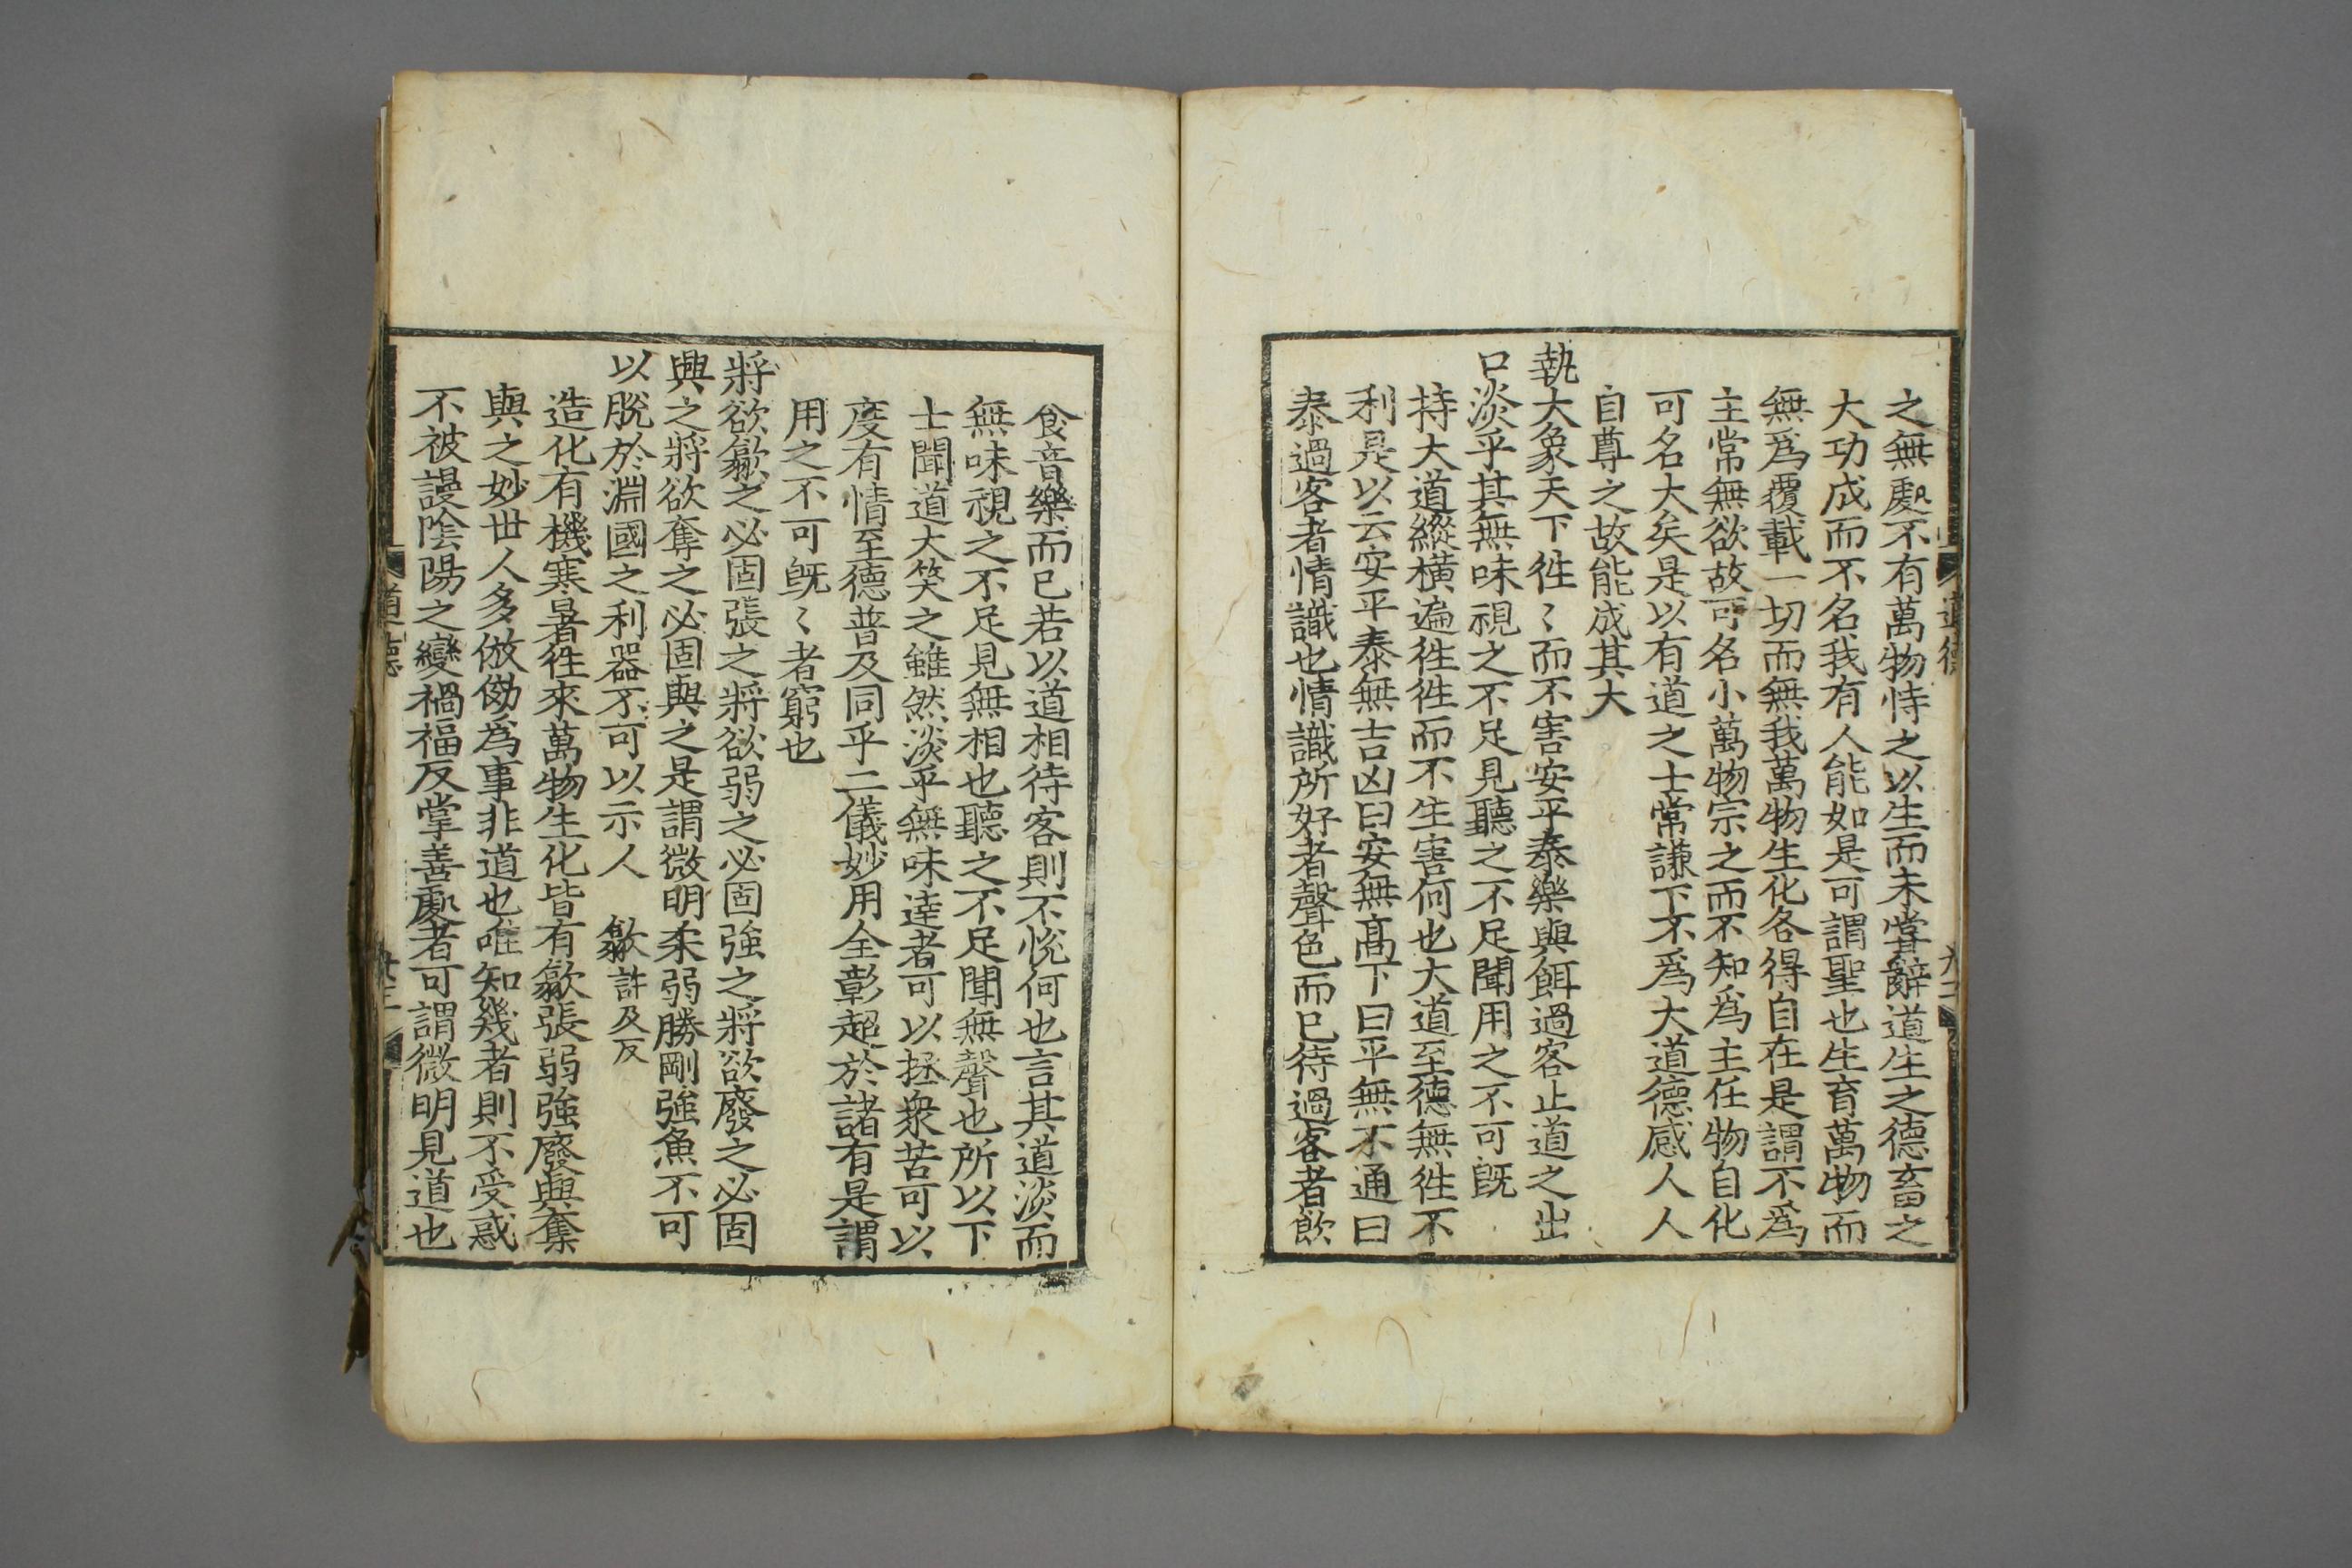 之無處不有萬物恃之以生而未甞辭道生之德畜之
大功成而不名我有人能如是可謂聖也生育萬物而
無爲覆載一切而無我萬物生化各得自在是謂不爲
主常無欲故可名小萬物宗之而不知爲主任物自化
可名大矣是以有道之士常謙下不爲大道德感人人
自尊之故能成其大
執大象天下徃〻而不害安平泰樂與餌過客止道之出
口淡乎其無味視之不足見聽之不足聞用之不可旣
持大道縱橫遍徃徃而不生害何也大道至德無徃不
利是以云安平泰無吉凶曰安無髙下曰平無不通曰
泰過客者情識也情識所好者聲色而已待過客者飮
食音樂而已若以道相待客則不悅何也言其道淡而
無味視之不足見無相也聽之不足聞無聲也所以下
士聞道大笑之雖然淡乎無味達者可以拯衆苦可以
度有情至德普及同乎二儀妙用全彰超於諸有是謂
用之不可旣〻者窮也
將欲歙之必固張之將欲弱之必固強之將欲廢之必固
興之將欲奪之必固與之是謂微明柔弱勝剛強魚不可
以脫於淵國之利器不可以示人 歙許及反
造化有機寒暑徃來萬物生化皆有歙張弱強廢興奪
與之妙世人多倣傚爲事非道也唯知幾者則不受惑
不被謾陰陽之變禍福反掌善處者可謂微明見道也
道德
道德